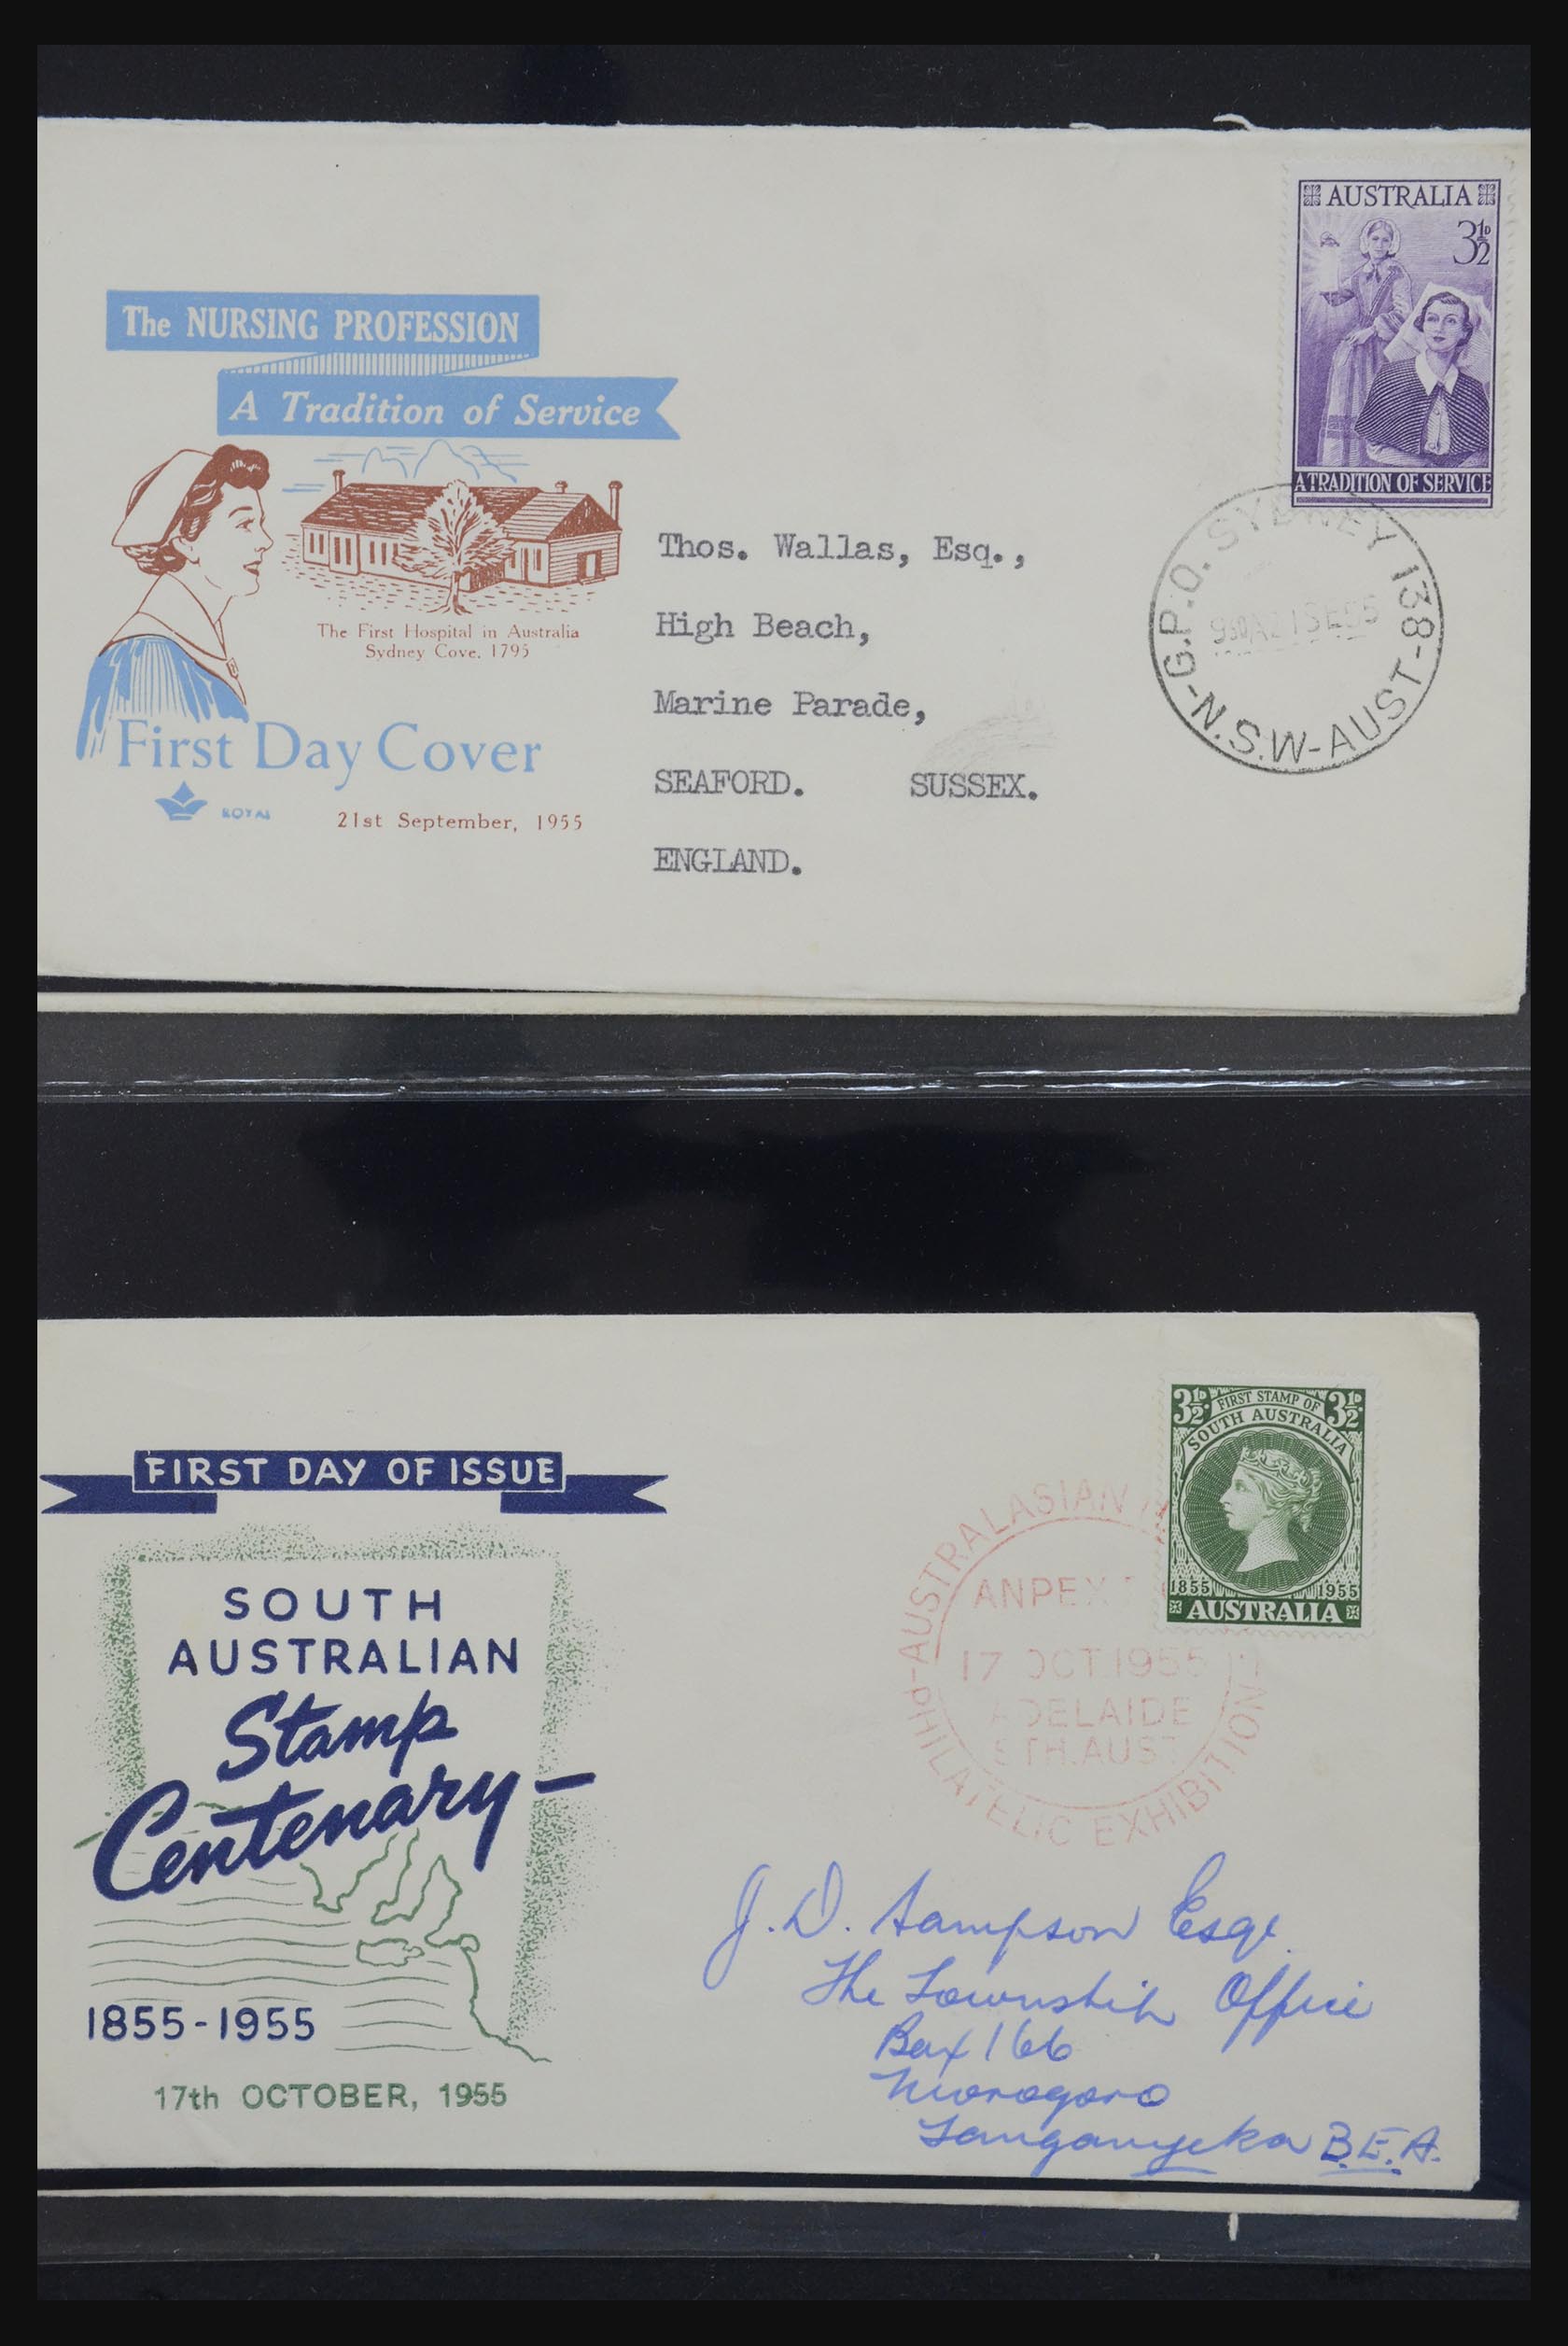 AUSTRALIA
3½D
A TRADITION OF SERVICE
The NURSING PROFESSION
A Tradition of Service
The First Hospital in Australia
Sydney Cove. 1795
First Day Cover
ROYAL
21st September, 1955
Thos. Wallas, Esq.,
High Beach,
Marine Parade,
SEAFORD. SUSSEX.
ENGLAND.
G.P.O. SYDNEY 138
930A 21SE55
-N.S.W-AUST-
3½D. FIRST STAMP OF 3½D.
SOUTH AUSTRALIA
1855 1955
AUSTRALIA
FIRST DAY OF ISSUE
SOUTH
AUSTRALIAN
Stamp
Centenary-
1855-1955
17th OCTOBER, 1955
AUSTRALASIAN
ANPEX
17 OCT.1955
ADELAIDE
STH.AUST
PHILATELIC EXHIBITION
J. D. Sampson Esqr.
The Township Office
Box 166
Morogoro
Tanganyeka B.E.A.